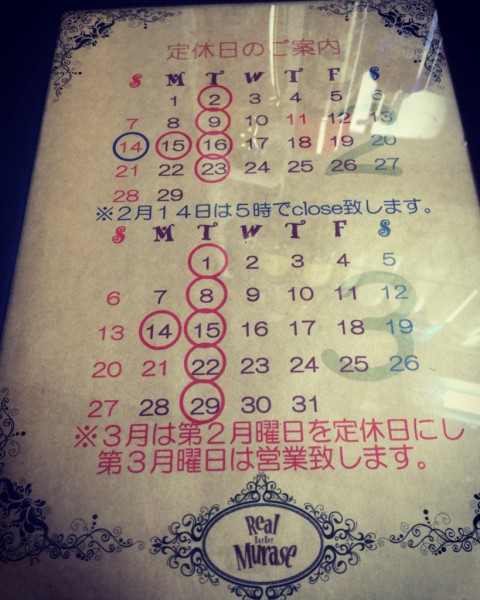 定休日のご案内
S M T W T F S
1 2 3 4 5 6
7 8 9 10 11 12 13
14 15 16 17 18 19 20
21 22 23 24 25 26 27
28 29
2
※2月14日は5時でclose致します。
S M T W T F S
1 2 3 4 5
6 7 8 9 10 11 12
13 14 15 16 17 18 19
20 21 22 23 24 25 26
27 28 29 30 31
3
※3月は第2月曜日を定休日にし
第3月曜日は営業致します。
Real
BarBer
Murase